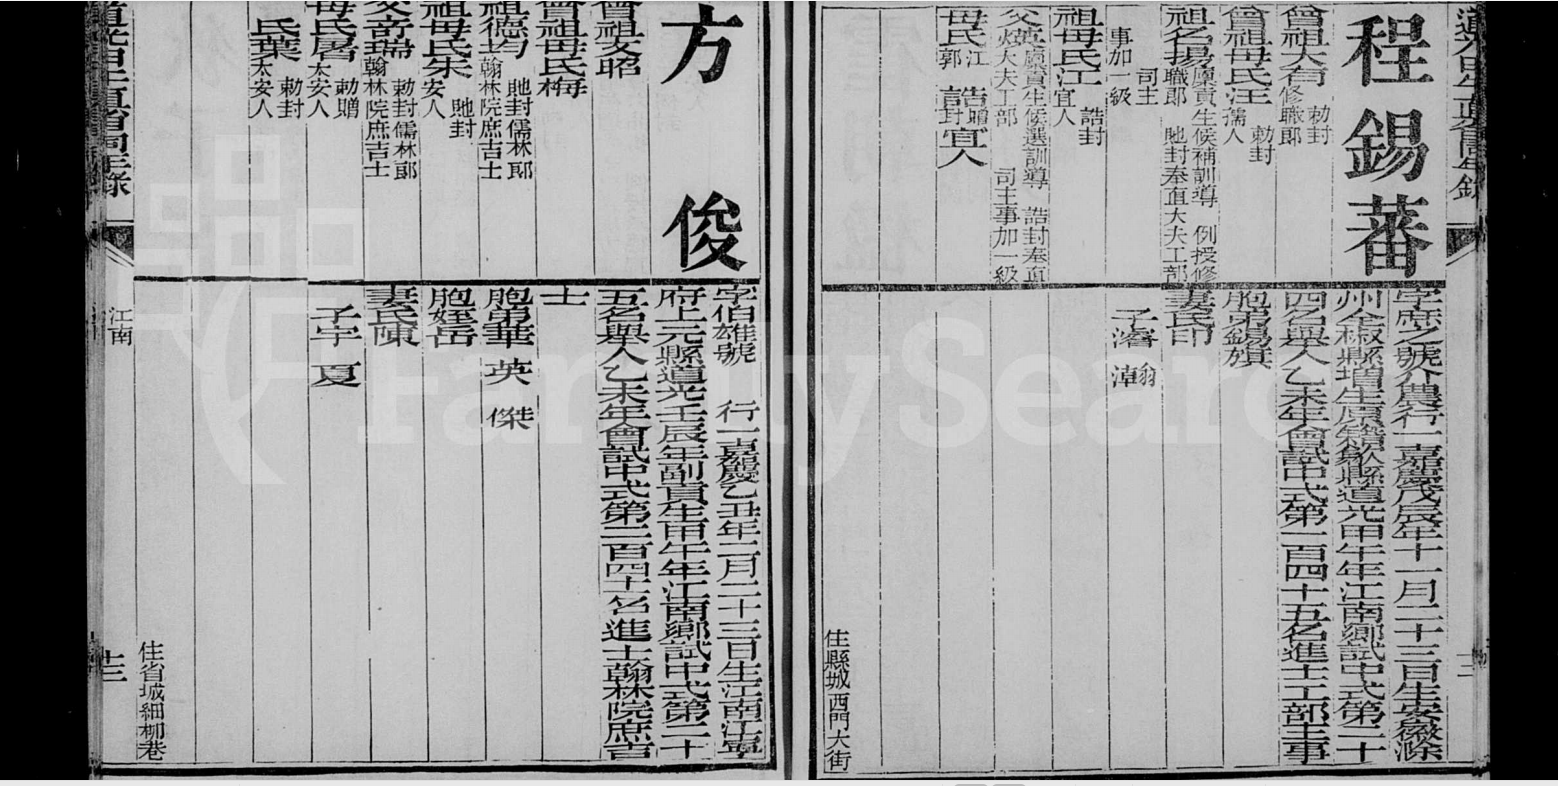 道光甲午直省同年錄
程錫蕃
曾祖大有修職郎 勅封
曾祖母氏汪孺人 勅封
祖名揚廩貢生候補訓導 例授修職郎 貤封奉直大夫工部
司主事加一級
祖母氏江宜人 誥封
父煥廩貢生候選訓導 誥封奉直大夫工部 司主事加一級
母氏江郭 誥贈封宜人
字庶之號介農行一嘉慶戊辰年十一月二十三日生安徽滁
州全椒縣增生原籍歙縣道光甲午年江南鄉試中式第二十
四名舉人乙未年會試中式第一百四十五名進士工部主事
胞弟錫旂
妻氏印
子濬 瀚 漳
住縣城西門大街
方俊
曾祖文昭
曾祖母氏梅
祖德均 貤封儒林郎翰林院庶吉士
祖母氏宋安人 貤封
父奇瑞 勅封儒林郎翰林院庶吉士
母氏屠太安人 勅贈
氏葉太安人 勅封
字伯雄號 行一嘉慶乙丑年二月二十三日生江南江寧
府上元縣道光壬辰年副貢生甲午年江南鄉試中式第二十
五名舉人乙未年會試中式第二百四十名進士翰林院庶吉
士
胞弟華 英 傑
胞姪岳
妻氏陳
子宇 夏
住省城細柳巷
道光甲午直省同年錄
江南
FamilySearch